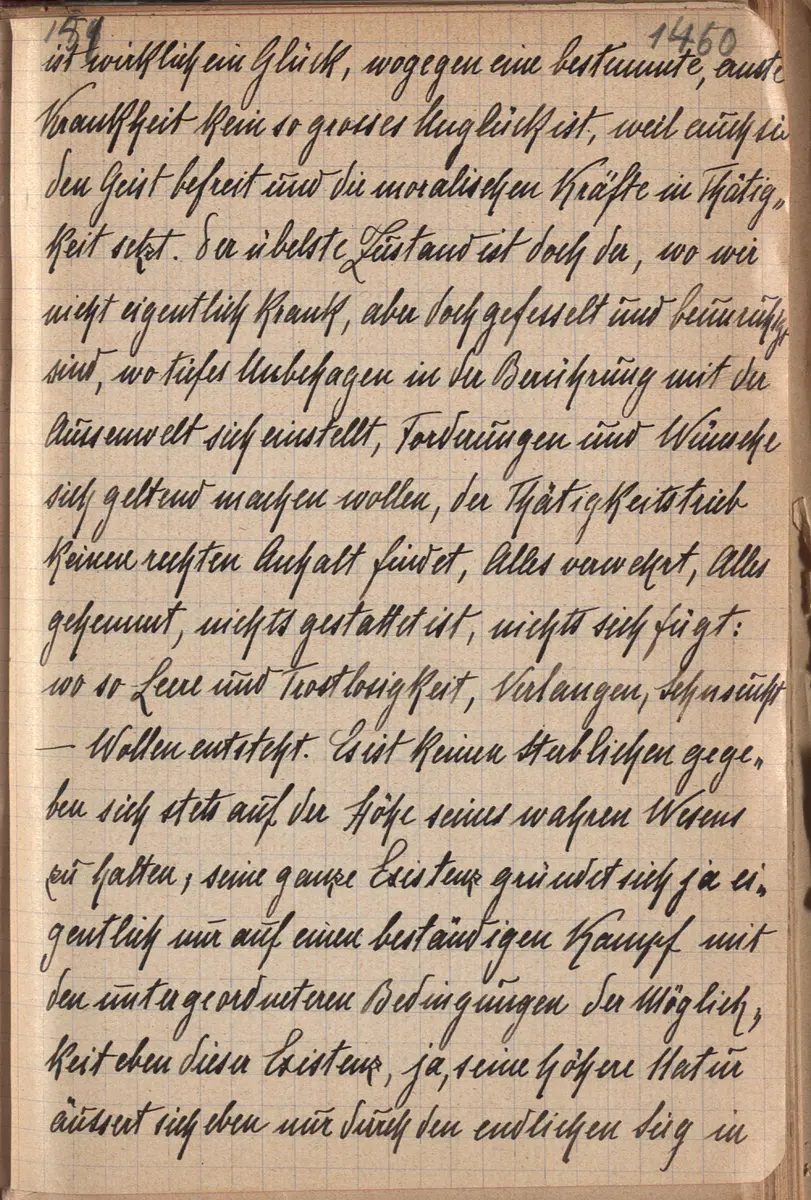 151 1460
ist wirklich ein Glück, wogegen eine bestimmte, ernste
Krankheit kein so grosses Unglück ist, weil auch sie
den Geist befreit und die moralischen Kräfte in Thätig„
keit setzt. Der übelste Zustand ist doch der, wo wir
nicht eigentlich krank, aber doch gefesselt und beunruhigt
sind, wo tiefes Unbehagen in der Berührung mit der
Aussenwelt sich einstellt, Forderungen und Wünsche
sich geltend machen wollen, der Thätigkeitstrieb
keinen rechten Anhalt findet, Alles verwehrt, Alles
gehemmt, nichts gestattet ist, nichts sich fügt:
wo so Leere und Trostlosigkeit, Verlangen, Sehnsucht
— Wollen entsteht. Es ist keinem Sterblichen gege„
ben sich stets auf der Höhe seines wahren Wesens
zu halten, seine ganze Existenz gründet sich ja ei„
gentlich nur auf einen beständigen Kampf mit
den untergeordneteren Bedingungen der Möglich„
keit eben dieser Existenz, ja, seine höhere Natur
äussert sich eben nur durch den endlichen Sieg in